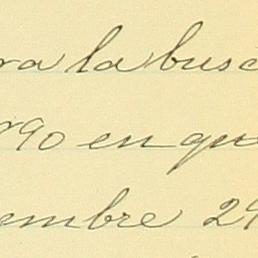 ra la busc
90 en qu
embre 29